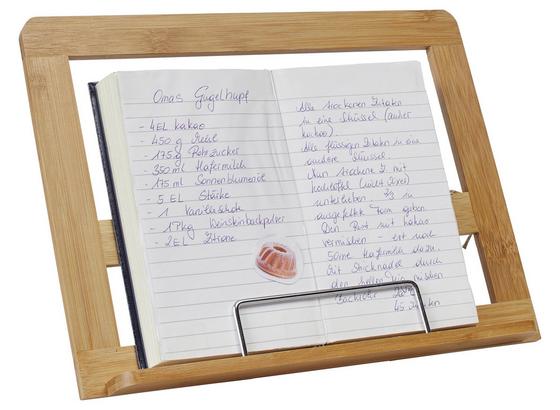 Omas Gugelhupf
- 4EL Kakao
- 450 g Mehl
- 175 g Rohrzucker
- 350 ml Hafermilch
- 175 ml Sonnenblumenöl
- 5 EL Stärke
- 1 Vanilleschote
- 1 Pkg Weinsteinbackpulver
- 2EL Zitrone
Alle trockenen Zutaten
in eine Schüssel (außer
Kakao).
Alle flüssigen Zutaten in eine
andere Schüssel.
Nun trockene Z. mit
Kochlöffel (nicht Mixer)
unterheben. 2/3 in
ausgefettete Form geben.
Den Rest mit Kakao
vermischen - evt noch
50ml Hafermilch dazu.
Mit Stricknadel durch
den hellen Teig mischen
Backrohr
45 Minuten